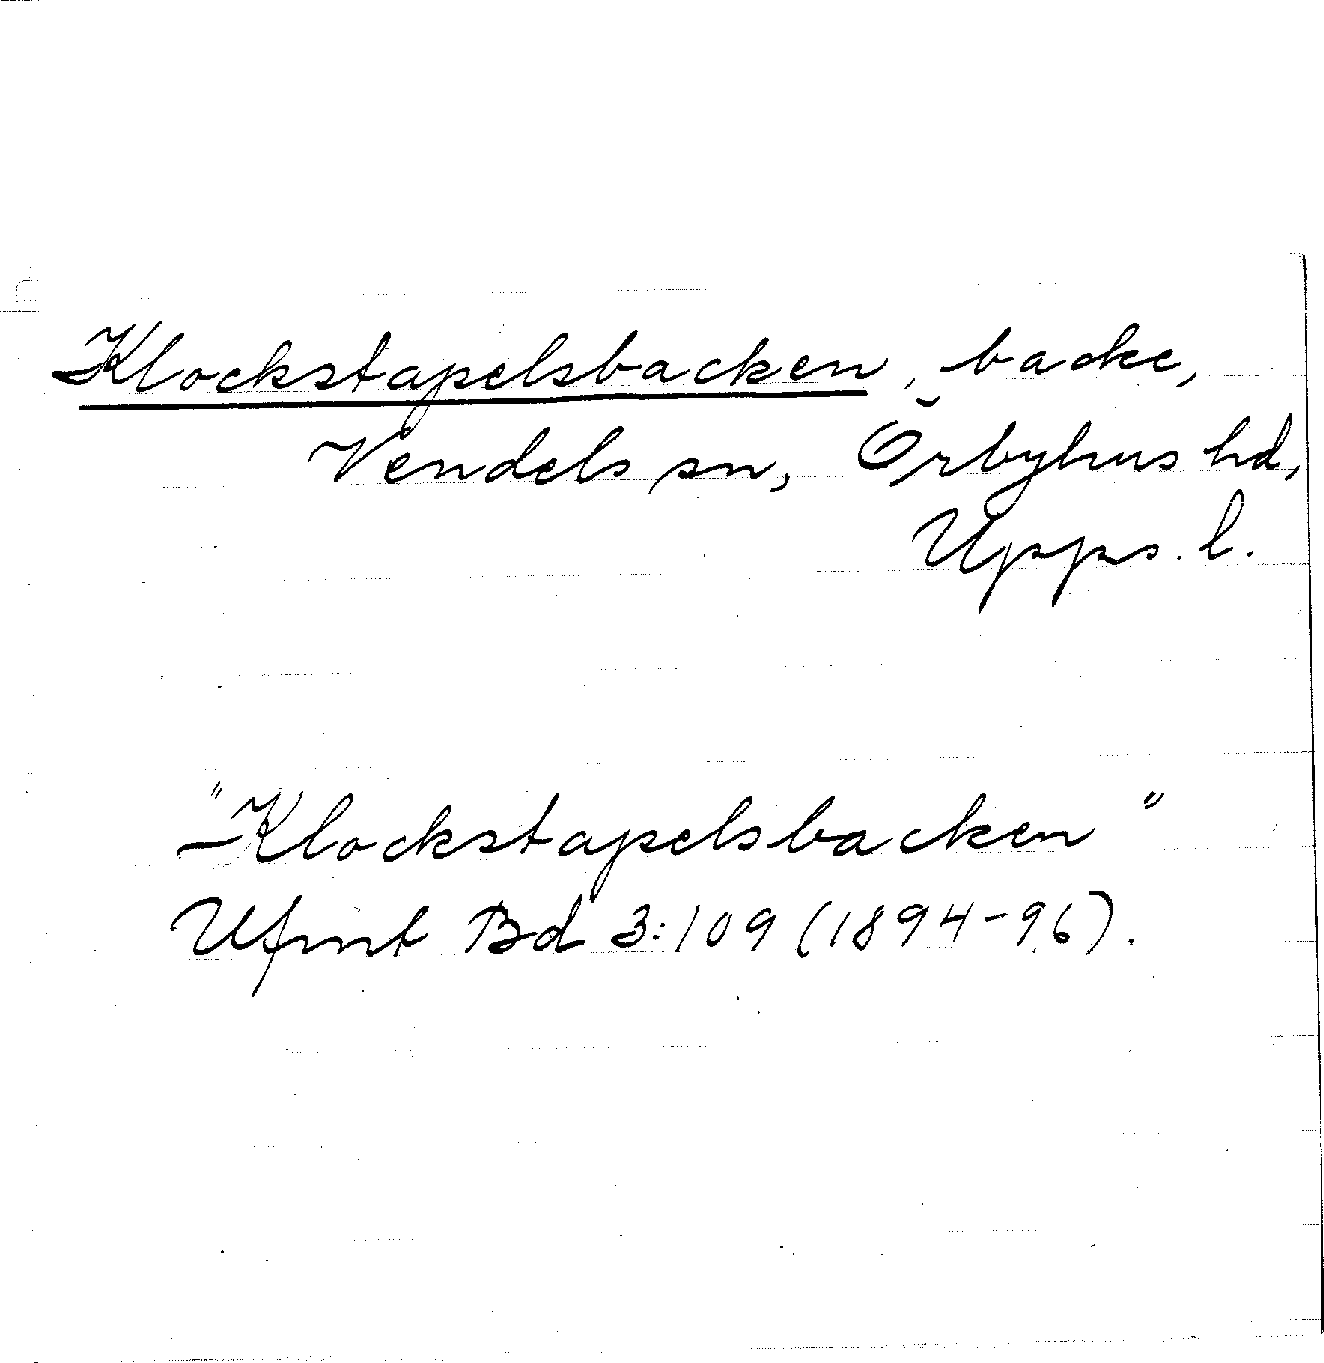 Klockstapelsbacken, backe,
Vendels sn, Örbyhus hd,
Upps. l.
"Klockstapelsbacken"
Ufmt Bd 3:109 (1894-96).